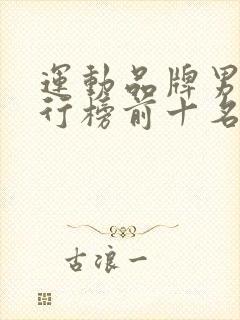 運動品牌男
行榜前十名
古浪一